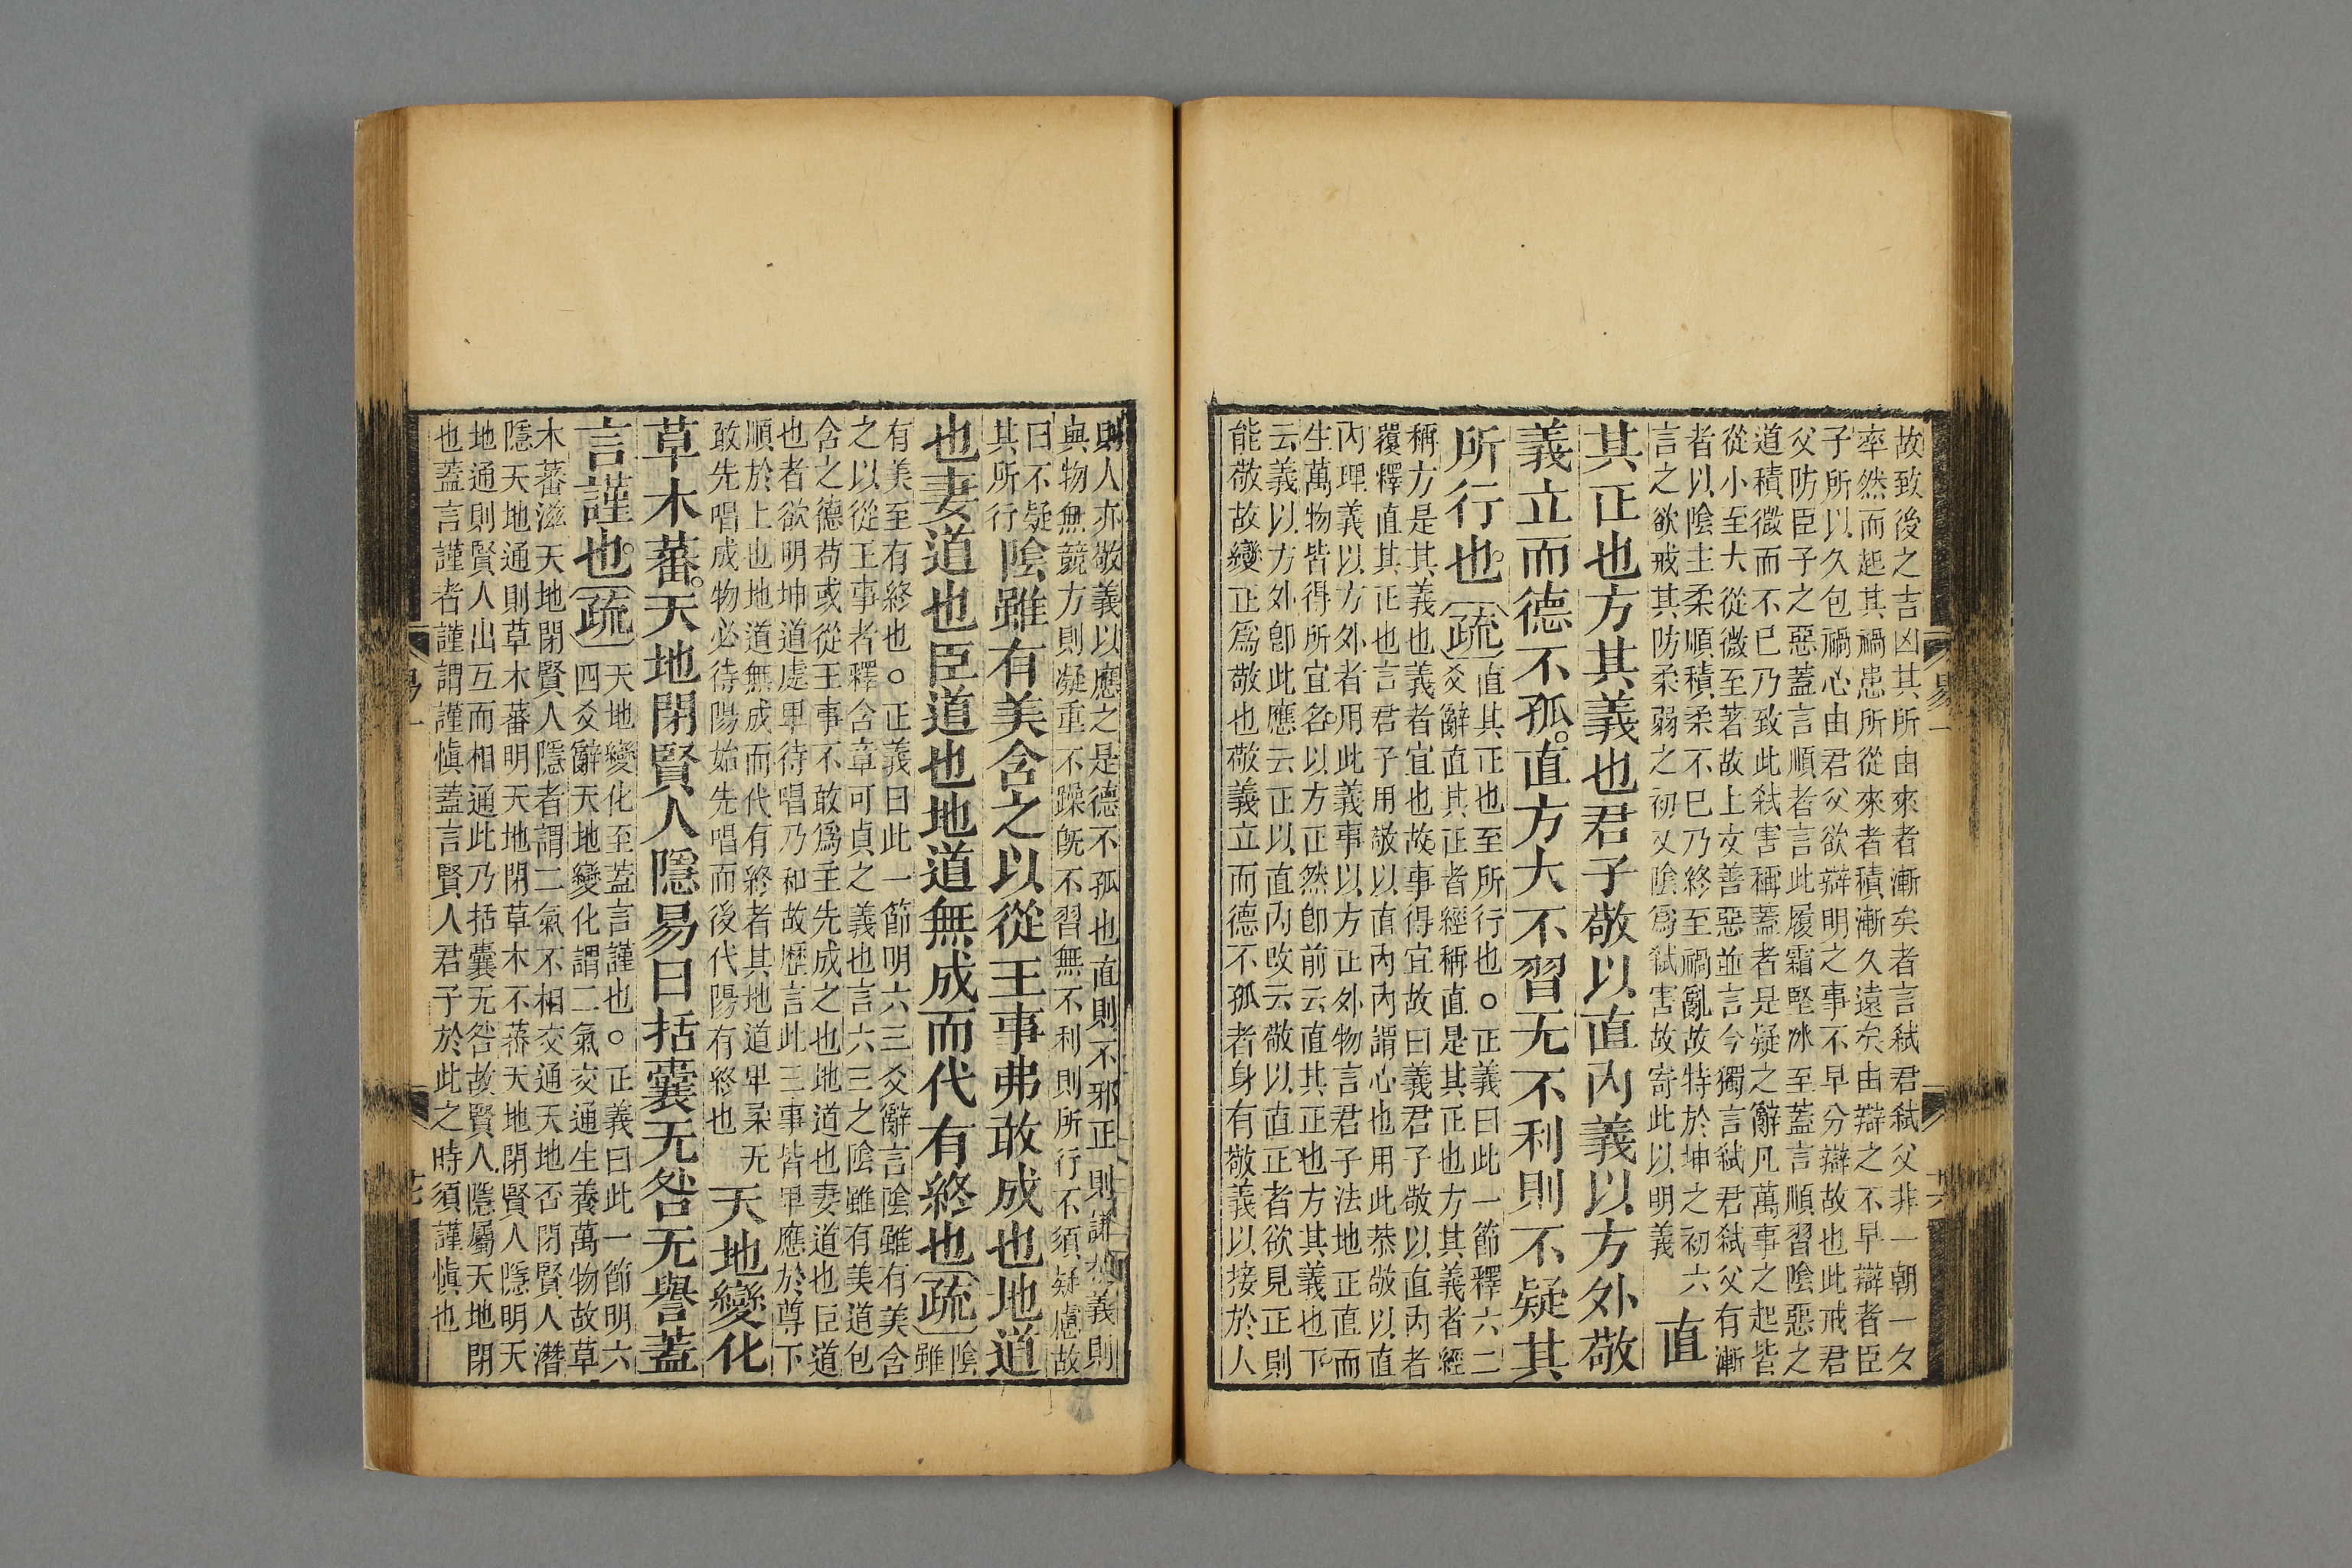 故致後之吉凶其所由來者漸矣者言弑君弑父非一朝一久
率然而起其禍患所從來者積漸久遠矣由辯之不早辯者臣
子所以久包禍心由君父欲辯明之事不早分辯故也此戒君
父防臣子之惡蓋言順者言此履霜堅冰至蓋言順習陰惡之
道積微而不已乃致此弑害稱蓋者是疑之辭凡萬事之起皆
從小至大從微至著故上文善惡並言今獨言弑君弑父有漸
者以陰主柔順積柔不已乃終至禍亂故特於坤之初六
言之欲戒其防柔弱之初又陰爲弑害故寄此以明義
直
其正也方其義也君子敬以直內義以方外敬
義立而德不孤直方大不習无不利則不疑其
所行也疏
直其正也至所行也○正義曰此一節釋六二
爻辭直其正者經稱直是其正也方其義者經
稱方是其義也義者宜也故事得宜故曰義君子敬以直內者
覆釋直其正也言君子用敬以直內內謂心也用此恭敬以直
內理義以方外者用此義事以方正外物言君子法地正直而
生萬物皆得所宜名以方正然卽前云直其正也方其義也下
云義以方外卽此應云正以直內改云敬以直正者欲見正則
能敬故變正爲敬也敬義立而德不孤者身有敬義以接於人
易一
則人亦敬義以應之是德不孤也直則不邪正則謙恭義則
與物無競方則凝重不躁旣不習無不利則所行不須疑慮故
曰不疑
其所行
陰雖有美含之以從王事弗敢成也地道
也妻道也臣道也地道無成而代有終也疏
陰
雖
有美至有終也○正義曰此一節明六三爻辭言陰雖有美含
之以從王事者釋含章可貞之義也言六三之陰雖有美道包
含之德苟或從王事不敢爲主先成之也地道也妻道也臣道
也者欲明坤道處卑待唱乃和故歷言此三事皆卑應於尊下
順於上也地道無成而代有終者其地道卑柔无
敢先唱成物必待陽始先唱而後代陽有終也
天地變化
草木蕃天地閉賢人隱易曰括囊无咎无譽蓋
言謹也疏
天地變化至蓋言謹也○正義曰此一節明六
四爻辭天地變化謂二氣交通生養萬物故草
木蕃滋天地閉賢人隱者謂二氣不相交通天地否閉賢人潛
隱天地通則草木蕃明天地閉草木不蕃天地閉賢人隱明天
地通則賢人出互而相通此乃括囊无咎故賢人隱屬天地閉
也蓋言謹者謹謂謹愼蓋言賢人君子於此之時須謹愼也